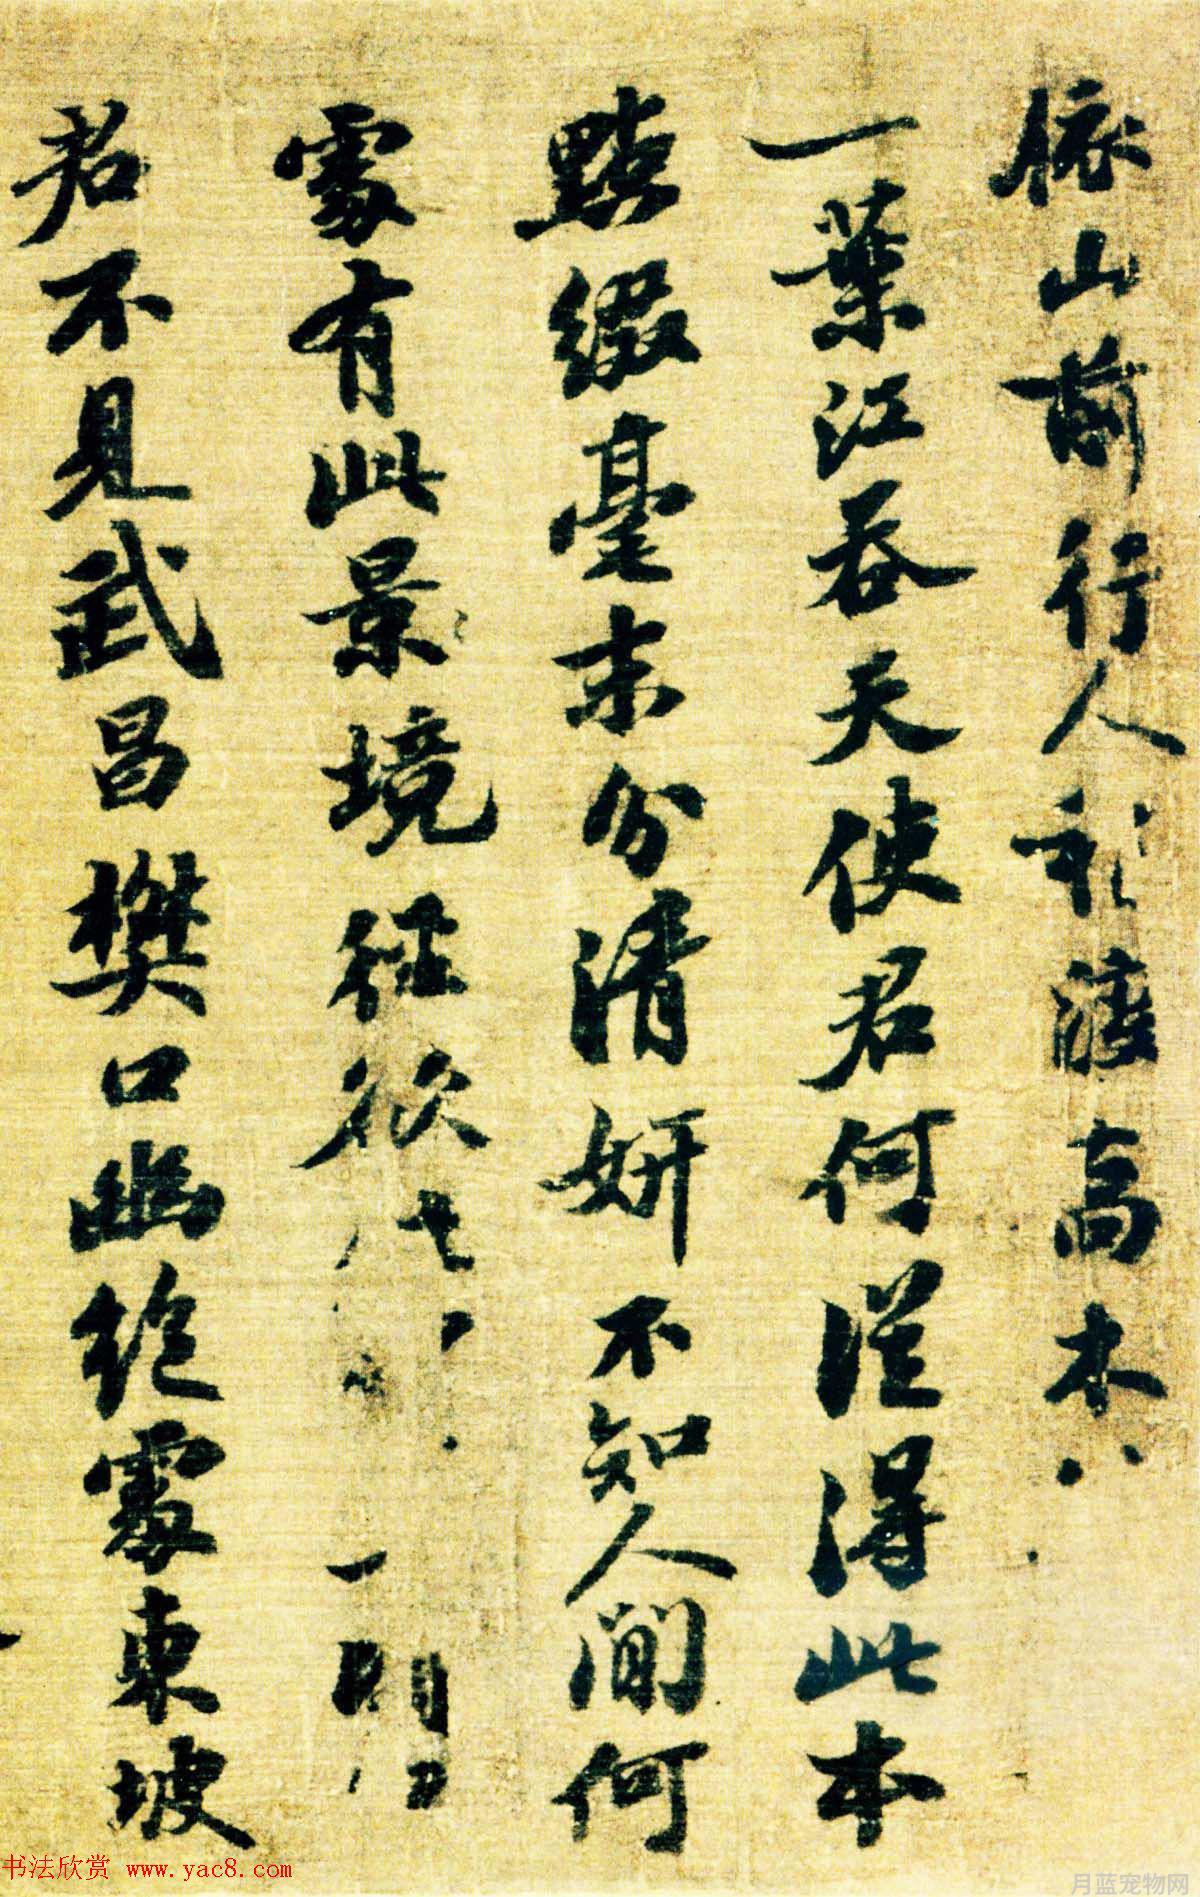 依山前行人稍渡喬木
一葉江吞天使君何從得此本
點綴毫末分清妍不知人間何
處有此景境徑欲
君不見武昌樊口幽絕處東坡
书法欣赏 www.yac8.com
月蓝宠物网